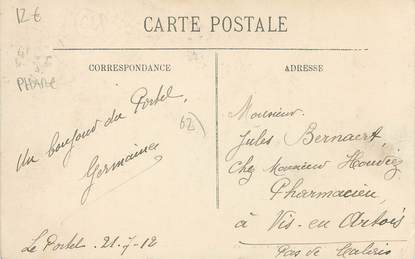 12€
PHARE
CARTE POSTALE
CORRESPONDANCE
ADRESSE
Un bonjour du Portel,
Germaine
62
Le Portel. 21-7-12
Monsieur
Jules Bernaert
Chez Monsieur
Pharmacien,
à Vis-en-Artois
Pas de Calais